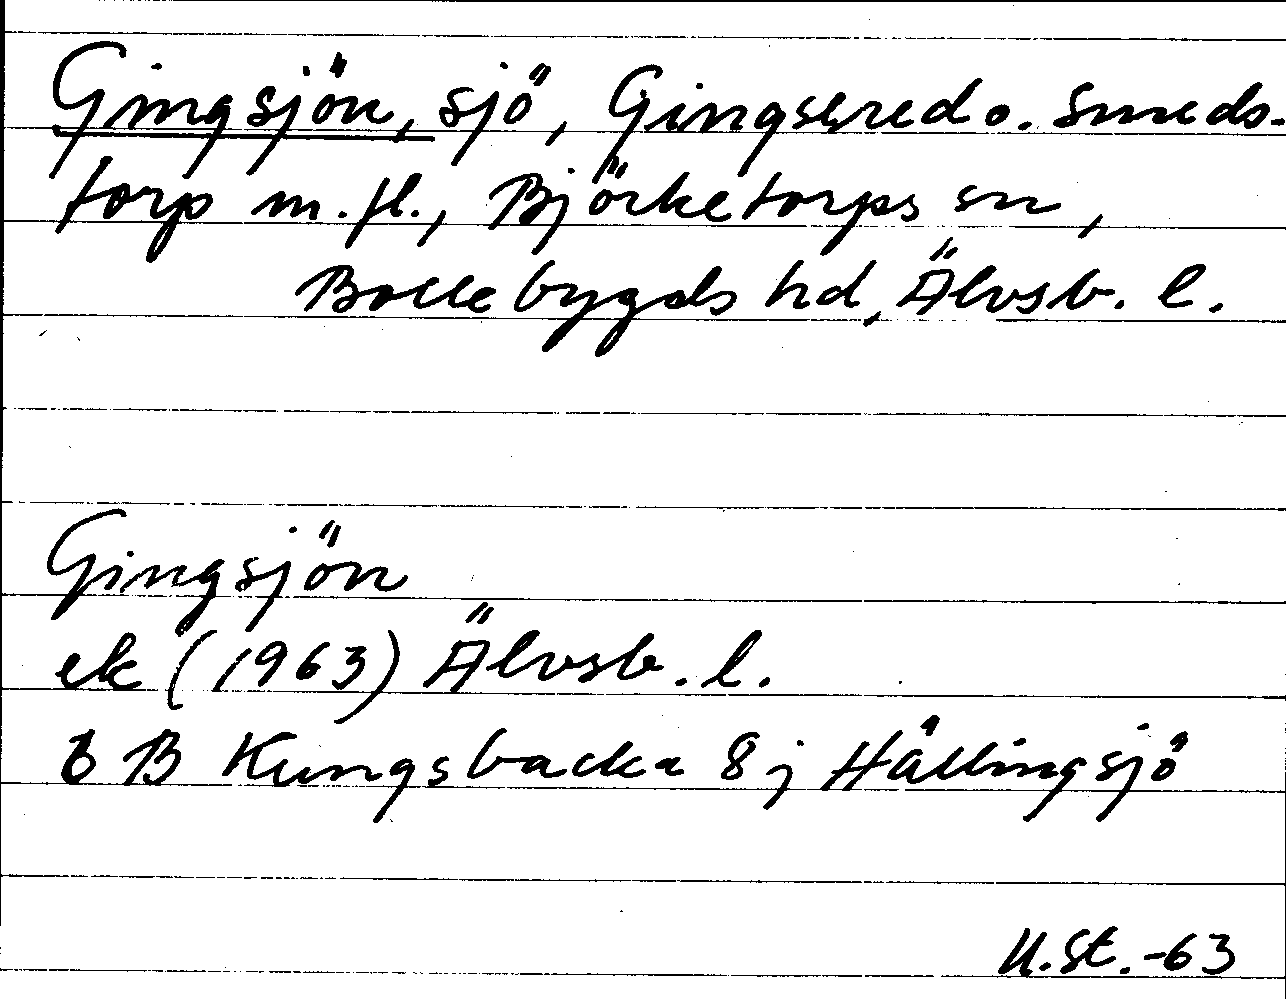 Gingsjön, sjö, Gingsered o. Smeds-
torp m.fl., Björketorps sn,
Bollebygds hd, Älvsb. l.
Gingsjön
ek (1963) Älvsb. l.
6 B Kungsbacka 8 j Hällingsjö
U.St. -63